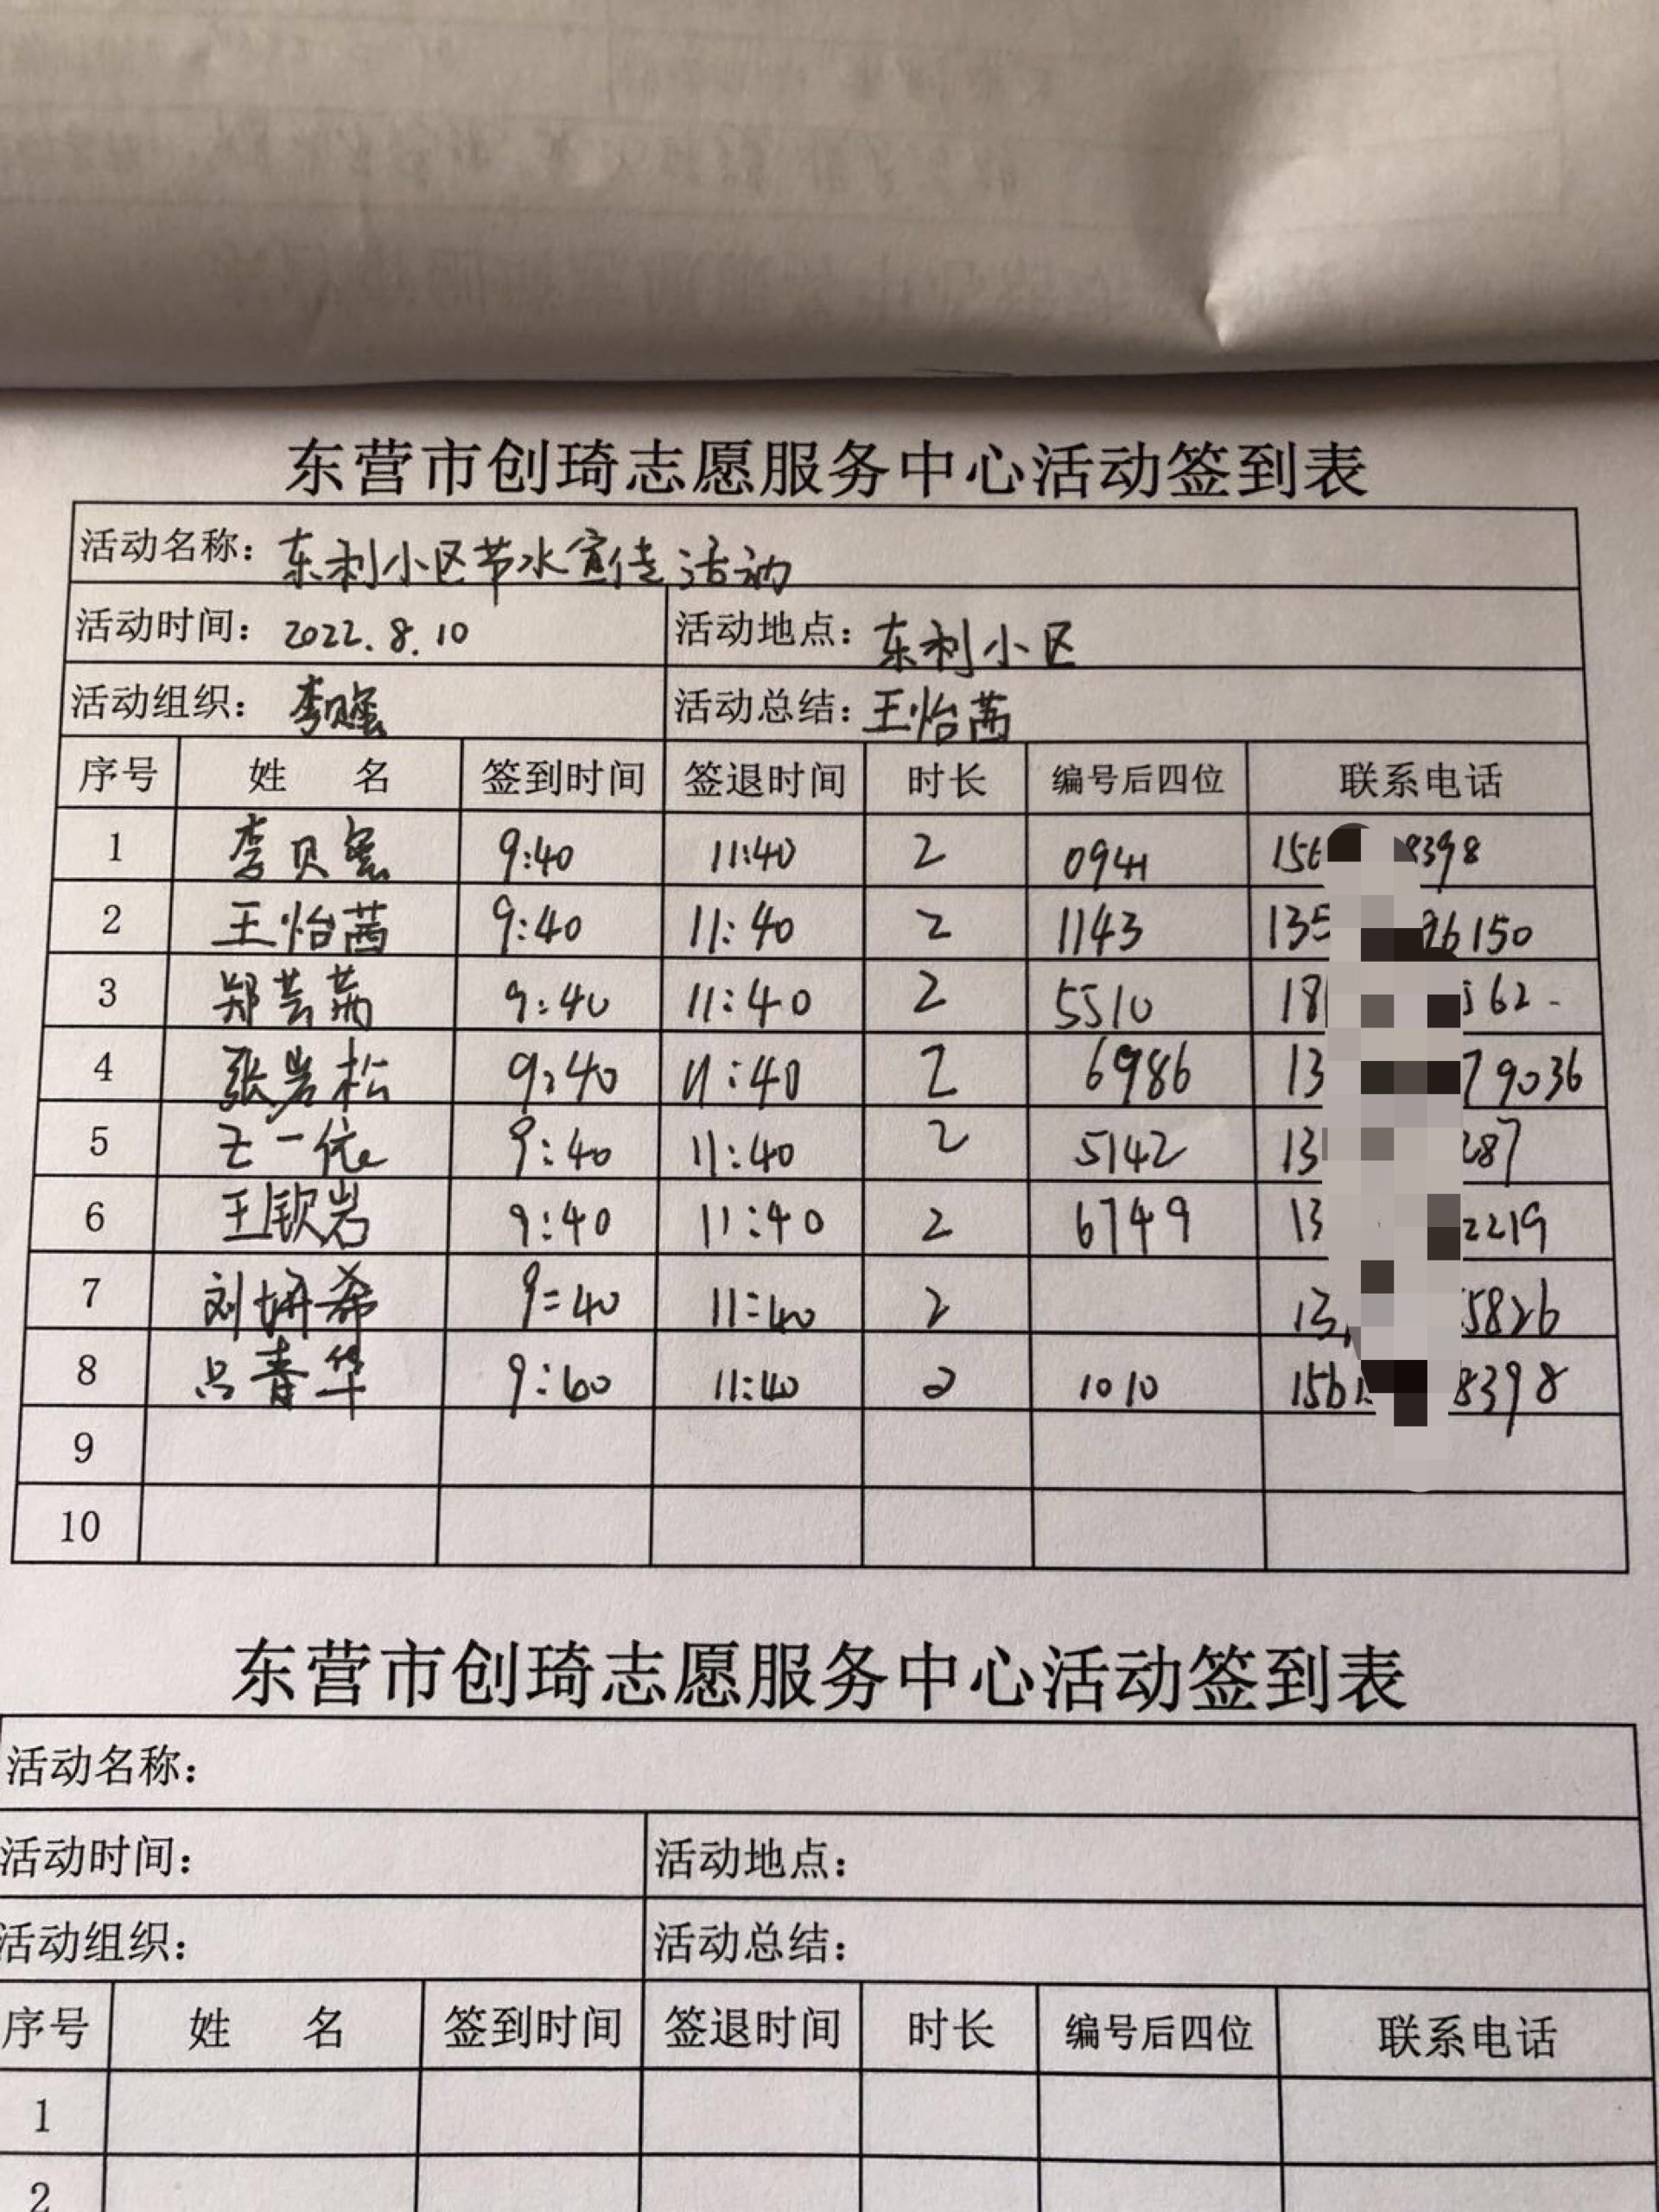 东营市创琦志愿服务中心活动签到表
活动名称：东利小区节水宣传活动
活动时间：2022.8.10 活动地点：东利小区
活动组织：李贝 活动总结：王怡茜
序号 姓 名 签到时间 签退时间 时长 编号后四位 联系电话
1 李贝 9:40 11:40 2 0941 156 8398
2 王怡茜 9:40 11:40 2 1143 135 96150
3 郑芸茜 9:40 11:40 2 5510 18 562
4 张岩松 9:40 11:40 2 6986 13 79036
5 一依 9:40 11:40 2 5142 13 287
6 王钦岩 9:40 11:40 2 6749 13 2219
7 刘妍希 9:40 11:40 2 13 5826
8 吕青华 9:60 11:40 2 1010 1561 8398
9
10
东营市创琦志愿服务中心活动签到表
活动名称：
活动时间： 活动地点：
活动组织： 活动总结：
序号 姓 名 签到时间 签退时间 时长 编号后四位 联系电话
1
2